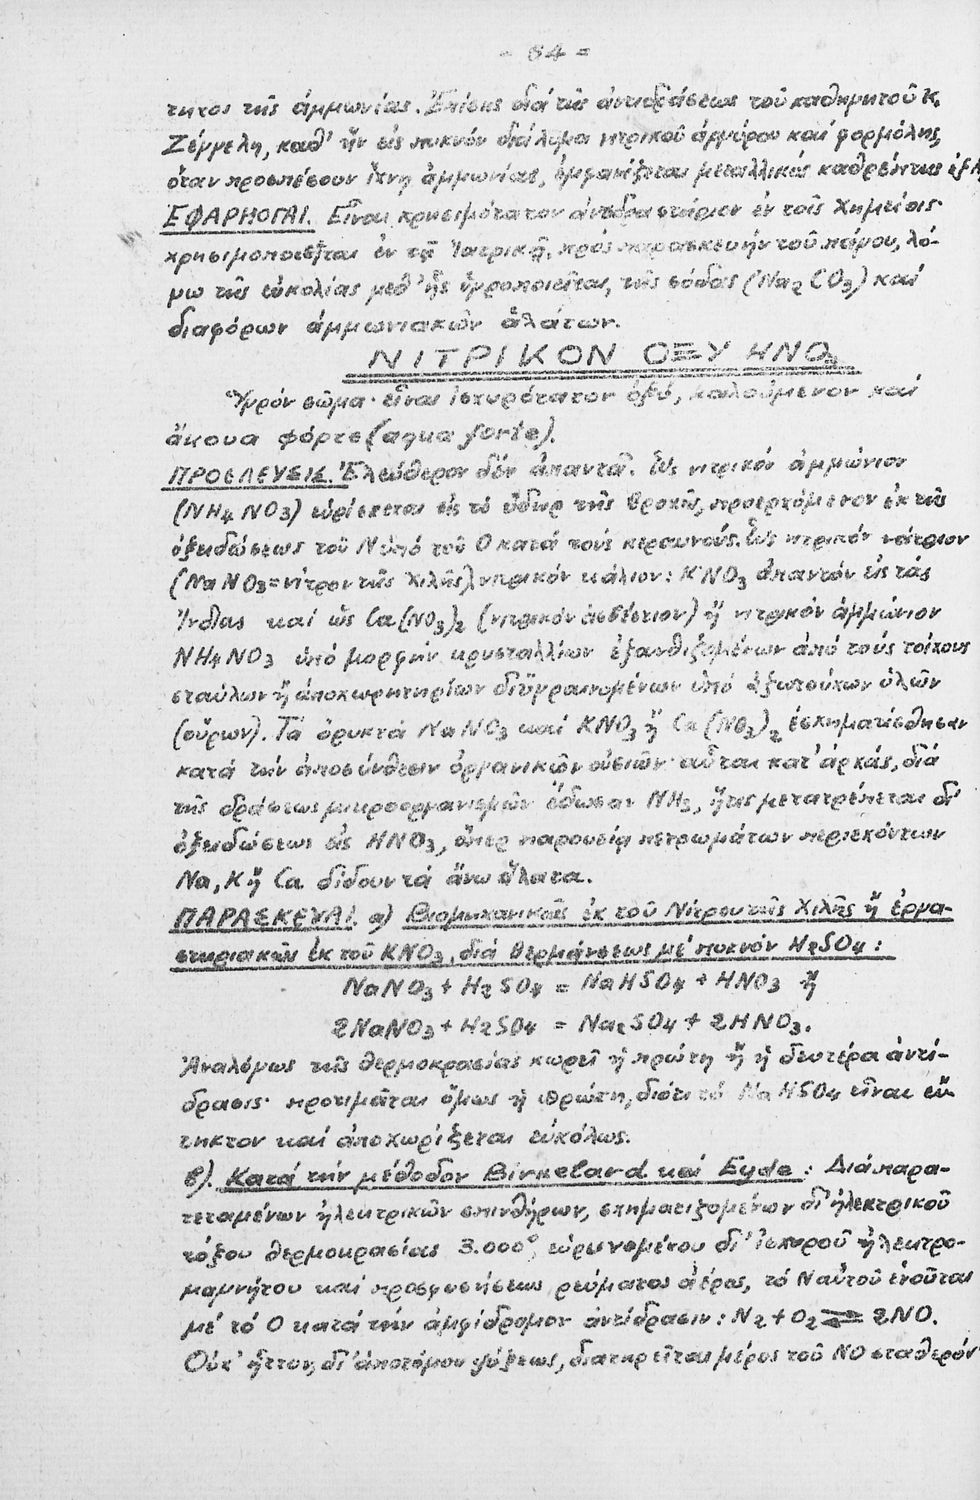 - 84 =
τητος τῆς ἀμμωνίας. Ἐπίσης διά τῆς ἀντιδράσεως τοῦ καθηγητοῦ Κ.
Ζέγγελη, καθ' ἥν εἰς πυκνόν διάλυμα νιτρικοῦ ἀργύρου καί φορμόλης,
ὅταν προσπέσουν ἴχνη ἀμμωνίας, ἐμφανίζεται μεταλλικός καθρέπτης ἐξ
ἘΦΑΡΜΟΓΑΙ. Εἶναι χρησιμότατον ἀντιδραστήριον ἐν τοῖς χημείοις·
χρησιμοποιεῖται ἐν τῇ Ἰατρικῇ, πρός παρασκευήν τοῦ πάγου, λό-
γω τῆς εὐκολίας μεθ' ἧς ὑγροποιεῖται, τῆς σόδας (Na₂CO₃) καί
διαφόρων ἀμμωνιακῶν ἀλάτων.
ΝΙΤΡΙΚΟΝ ΟΞΥ HNO₃
Ὑγρόν σῶμα· εἶναι ἰσχυρότατον ὀξύ, καλούμενον καί
ἄκουα φόρτε (aqua forte).
ΠΡΟΕΛΕΥΣΙΣ. Ἐλεύθερον δέν ἀπαντᾶ. Ὡς νιτρικόν ἀμμώνιον
(NH₄NO₃) εὑρίσκεται εἰς τό ὕδωρ τῆς βροχῆς, προερχόμενον ἐκ τῆς
ὀξειδώσεως τοῦ Ν ὑπό τοῦ Ο κατά τούς κεραυνούς. Ὡς νιτρικόν νάτριον
(NaNO₃=νίτρον τῆς Χιλῆς) νιτρικόν κάλιον: KNO₃ ἀπαντόν εἰς τάς
Ἰνδίας καί ὡς Ca(NO₃)₂ (νιτρικόν ἀσβέστιον) ἤ νιτρικόν ἀμμώνιον
NH₄NO₃ ὑπό μορφήν κρυσταλλίων ἐξανθιζομένων ἀπό τούς τοίχους
σταύλων ἤ ἀποχωρητηρίων διϋγραινομένων ὑπό ἀζωτούχων ὑλῶν
(οὔρων). Τά ὀρυκτά NaNO₃ καί KNO₃ ἤ Ca(NO₃)₂ ἐσχηματίσθησαν
κατά τήν ἀποσύνθεσιν ὀργανικῶν οὐσιῶν· αὗται κατ' ἀρχάς, διά
τῆς δράσεως μικροοργανισμῶν ἔδωσαν NH₃, ἥτις μετατρέπεται δι'
ὀξειδώσεως εἰς HNO₃, ὅπερ παρουσίᾳ πετρωμάτων περιεχόντων
Na, K ἤ Ca δίδουν τά ἄνω ἅλατα.
ΠΑΡΑΣΚΕΥΑΙ. α) Βιομηχανικῶς ἐκ τοῦ Νίτρου τῆς Χιλῆς ἤ ἐργα-
στηριακῶς ἐκ τοῦ KNO₃, διά θερμάνσεως μέ πυκνόν H₂SO₄:
NaNO₃ + H₂SO₄ = NaHSO₄ + HNO₃ ἤ
2NaNO₃ + H₂SO₄ = Na₂SO₄ + 2HNO₃.
Ἀναλόγως τῆς θερμοκρασίας χωρεῖ ἡ πρώτη ἤ ἡ δευτέρα ἀντί-
δρασις· προτιμᾶται ὅμως ἡ πρώτη, διότι τό NaHSO₄ εἶναι εὔ-
τηκτον καί ἀποχωρίζεται εὐκόλως.
β). Κατά τήν μέθοδον Birkeland καί Eyde: Διά παρα-
τεταμένων ἠλεκτρικῶν σπινθήρων, σχηματιζομένων δι' ἠλεκτρικοῦ
τόξου θερμοκρασίας 3.000°, εὑρυνομένου δι' ἰσχυροῦ ἠλεκτρο-
μαγνήτου καί προσφυσήσεως ρεύματος ἀέρος, τό Ν αὐτοῦ ἑνοῦται
μέ τό Ο κατά τήν ἀμφίδρομον ἀντίδρασιν: N₂ + O₂ ⇌ 2NO.
Οὐχ' ἧττον, δι' ἀποτόμου ψύξεως, διατηρεῖται μέρος τοῦ NO σταθερόν